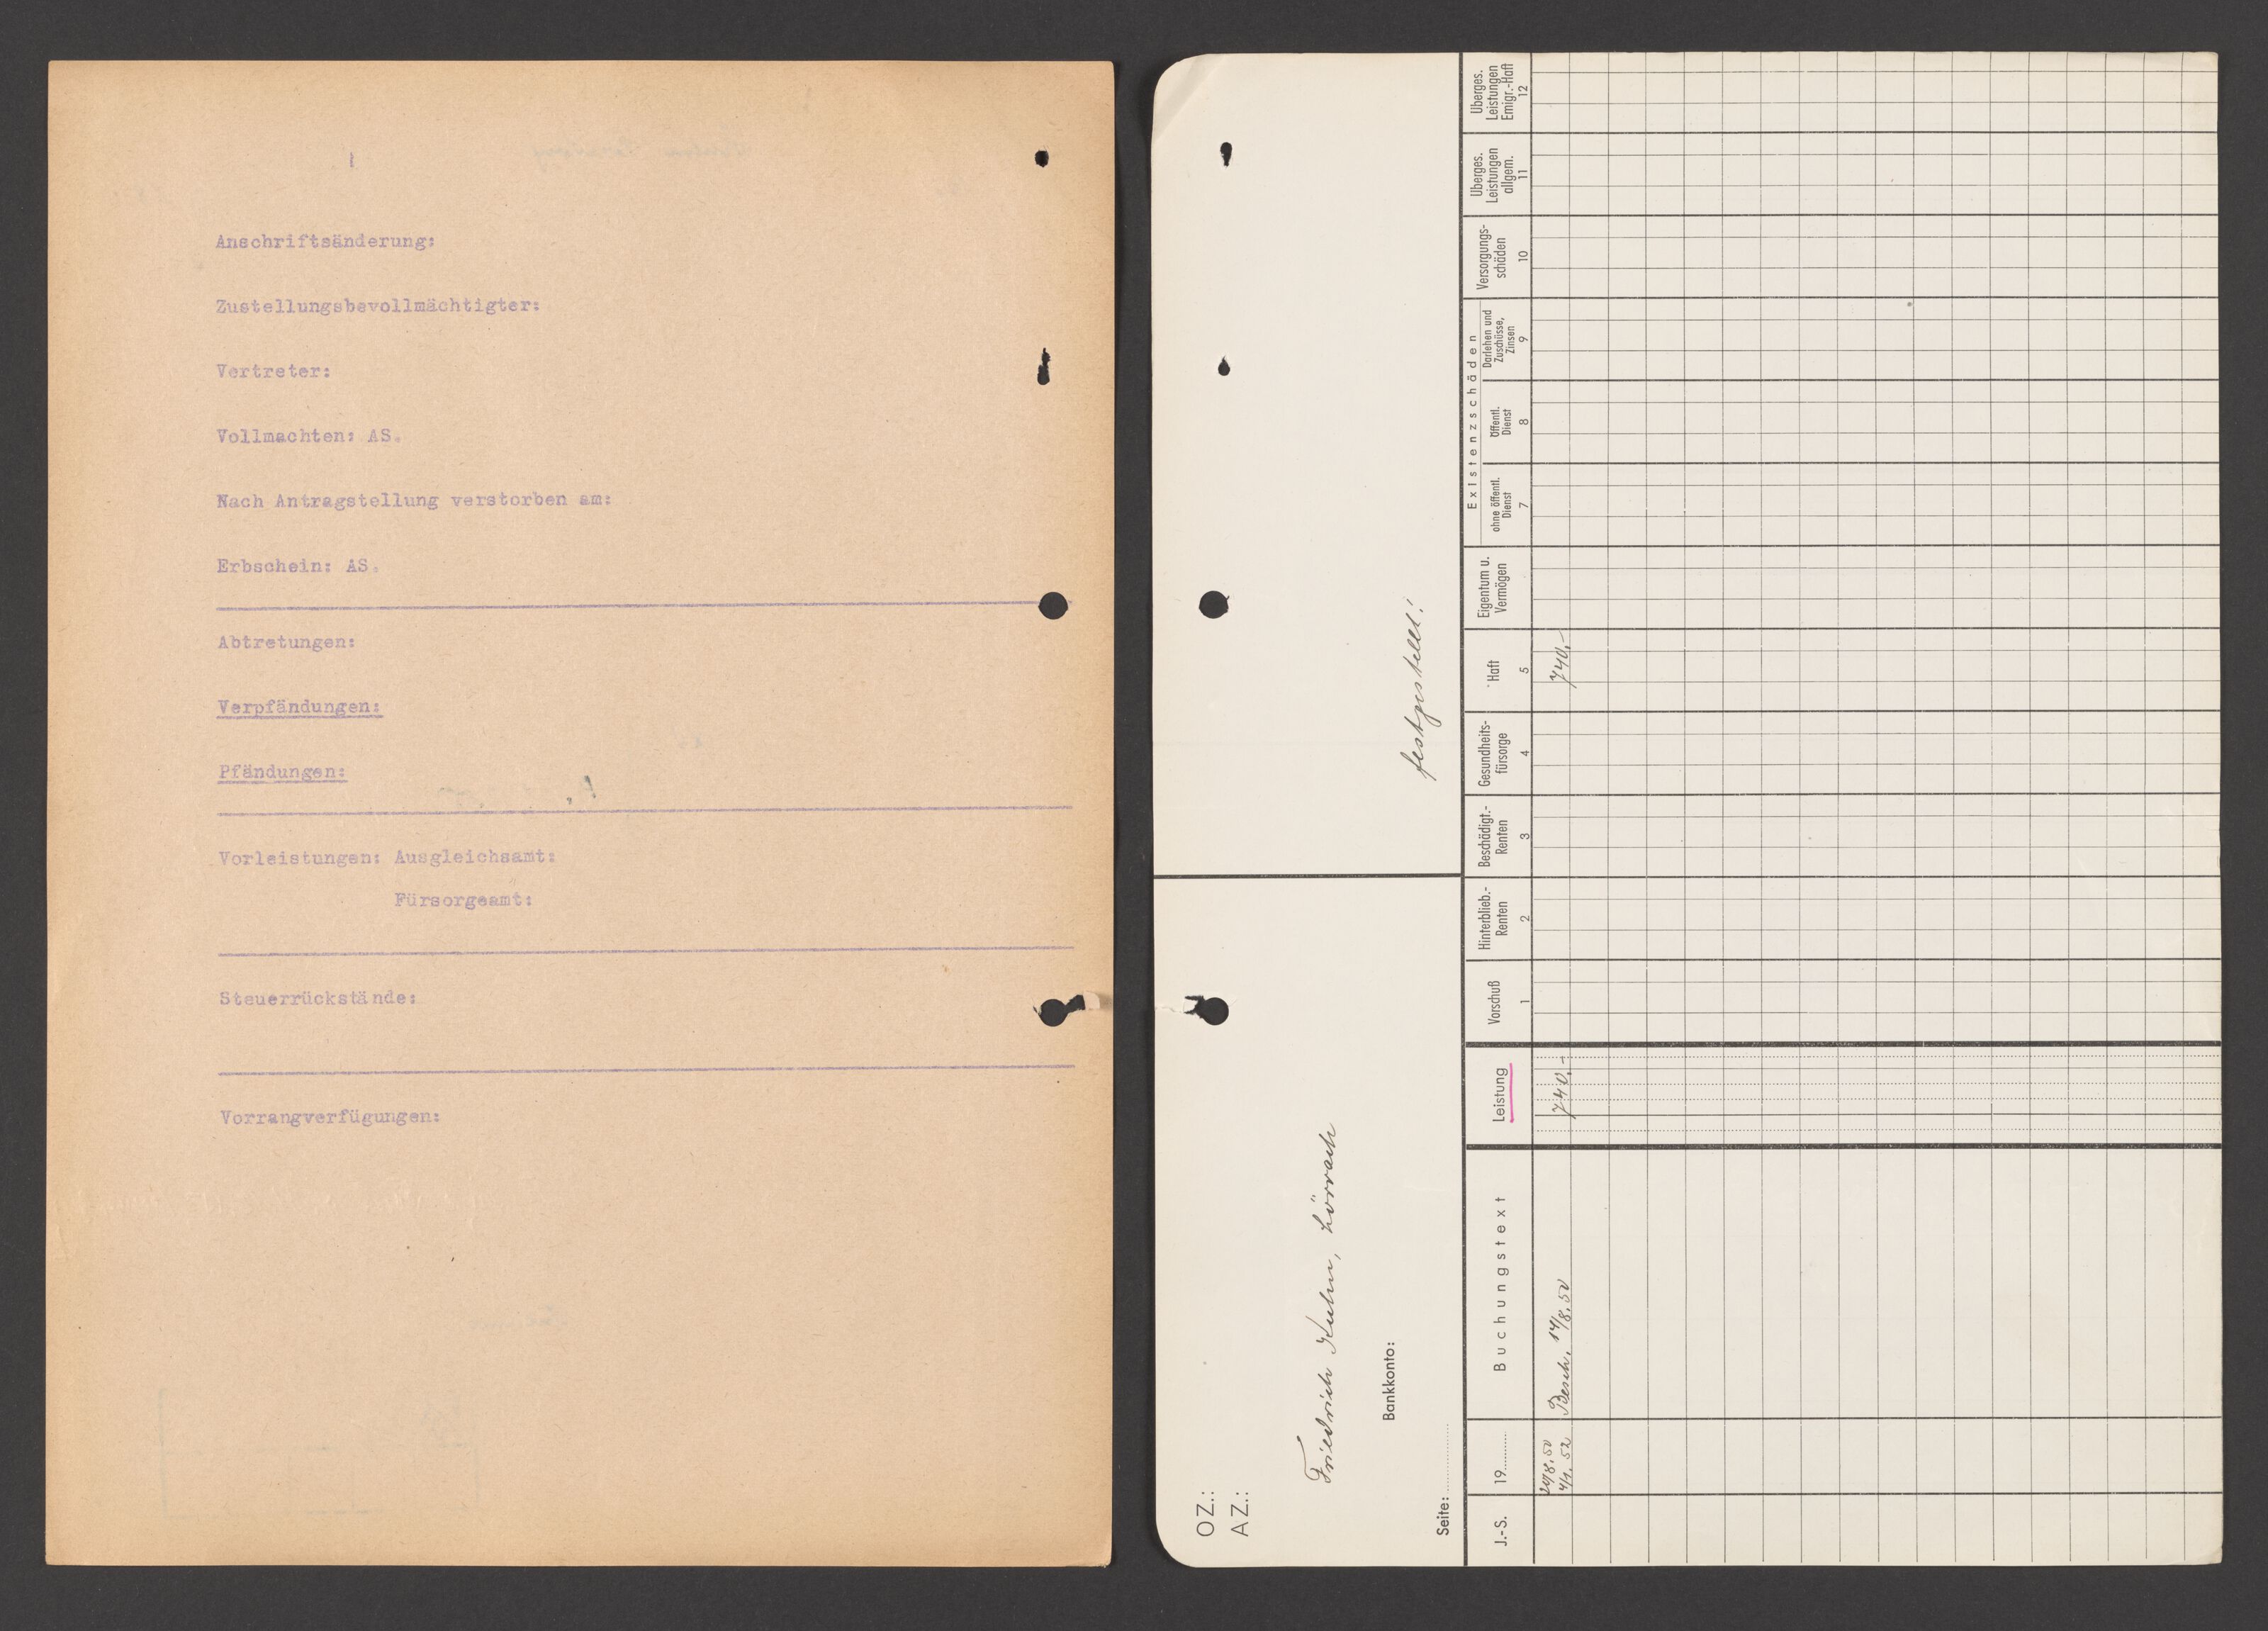 Anschriftsänderung:
Zustellungsbevollmächtigter:
Vertreter:
Vollmachten: AS.
Nach Antragstellung verstorben am:
Erbschein: AS.
Abtretungen:
Verpfändungen:
Pfändungen:
Vorleistungen: Ausgleichsamt:
Fürsorgeamt:
Steuerrückstände:
Vorrangverfügungen:
OZ.:
AZ.:
Friedrich Kuhn, Lörrach
Bankkonto:
festgestellt!
Seite:
J.-S.
19
Buchungstext
Leistung
Vorschuß
1
Hinterblieb.-
Renten
2
Beschädigt.-
Renten
3
Gesundheits-
fürsorge
4
Haft
5
Eigentum u.
Vermögen
Existenzschäden
ohne öffentl.
Dienst
7
öffentl.
Dienst
8
Darlehen und
Zuschüsse,
Zinsen
9
Versorgungs-
schäden
10
Überges.
Leistungen
allgem.
11
Überges.
Leistungen
Emigr.-Haft
12
4/1. 52 Besch. 14/8. 50 740,- 740,-